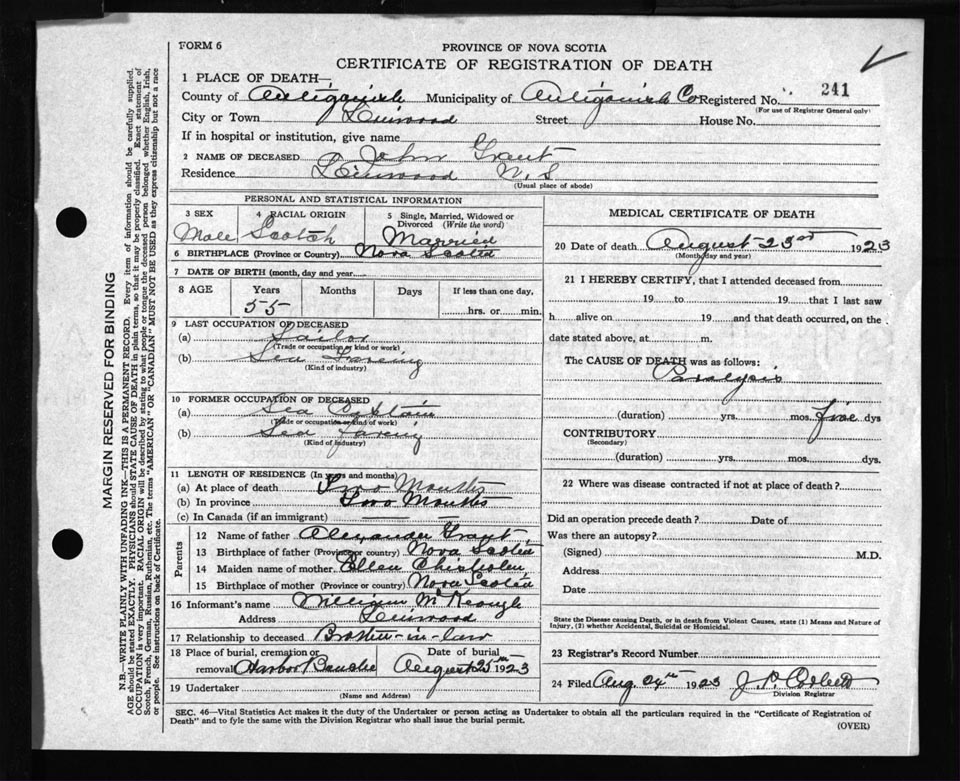 FORM 6
PROVINCE OF NOVA SCOTIA
CERTIFICATE OF REGISTRATION OF DEATH
1 PLACE OF DEATH—
County of Antigonish Municipality of Antigonish Co Registered No. 241
(For use of Registrar General only)
City or Town Linwood Street House No.
If in hospital or institution, give name
2 NAME OF DECEASED John Grant
Residence Linwood N.S
(Usual place of abode)
PERSONAL AND STATISTICAL INFORMATION
3 SEX 4 RACIAL ORIGIN 5 Single, Married, Widowed or Divorced (Write the word)
Male Scotch Married
6 BIRTHPLACE (Province or Country) Nova Scotia
7 DATE OF BIRTH (month, day and year)
8 AGE Years Months Days If less than one day,
55 hrs. or min.
9 LAST OCCUPATION OF DECEASED
(a) Sailor
(Trade or occupation or kind of work)
(b) Sea Fareing
(Kind of industry)
10 FORMER OCCUPATION OF DECEASED
(a) Sea Captain
(Trade or occupation or kind of work)
(b) Sea Fareing
(Kind of industry)
11 LENGTH OF RESIDENCE (In years and months)
(a) At place of death Two Months
(b) In province Two Months
(c) In Canada (if an immigrant)
Parents
12 Name of father Alexander Grant
13 Birthplace of father (Province or country) Nova Scotia
14 Maiden name of mother Ellen Chisholm
15 Birthplace of mother (Province or country) Nova Scotia
16 Informant's name William McKeough
Address Linwood
17 Relationship to deceased Brother-in-law
18 Place of burial, cremation or removal Harbor Bouche Date of burial August 25th 1923
19 Undertaker
(Name and Address)
MEDICAL CERTIFICATE OF DEATH
20 Date of death August 23rd 1923
(Month, day and year)
21 I HEREBY CERTIFY, that I attended deceased from
19 to 19 that I last saw
h alive on 19 and that death occurred, on the
date stated above, at m.
The CAUSE OF DEATH was as follows:
Paralysis
(duration) yrs. mos. five dys
CONTRIBUTORY
(Secondary)
(duration) yrs. mos. dys.
22 Where was disease contracted if not at place of death?
Did an operation precede death? Date of
Was there an autopsy?
(Signed) M.D.
Address
Date
State the Disease causing Death, or in death from Violent Causes, state (1) Means and Nature of
Injury, (2) whether Accidental, Suicidal or Homicidal.
23 Registrar's Record Number
24 Filed Aug 24th 1923
Division Registrar
SEC. 46—Vital Statistics Act makes it the duty of the Undertaker or person acting as Undertaker to obtain all the particulars required in the "Certificate of Registration of
Death" and to fyle the same with the Division Registrar who shall issue the burial permit.
(OVER)
MARGIN RESERVED FOR BINDING
N.B.—WRITE PLAINLY WITH UNFADING INK—THIS IS A PERMANENT RECORD. Every item of information should be carefully supplied.
AGE should be stated EXACTLY. PHYSICIANS should STATE CAUSE OF DEATH in plain terms, so that it may be properly classified. Exact statement of
OCCUPATION is very important. RACIAL ORIGIN will be described by stating to what people or tongue the deceased person belonged whether English, Irish,
Scotch, French, German, Russian, Ruthenian, etc. The terms "AMERICAN" OR "CANADIAN" MUST NOT BE USED as they express citizenship but not a race
or people. See instructions on back of Certificate.